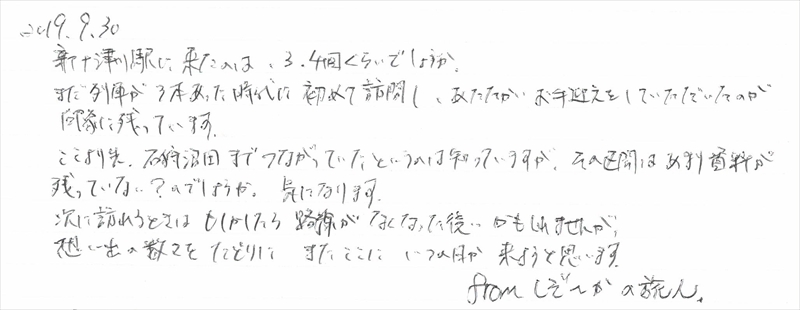 2019.9.30
新十津川駅に来たのは、3.4回くらいでしょうか。
まだ列車が3本あった時代に初めて訪問し、あたたかいお手迎えをしていただいたのが
印象に残っています。
ここより先、石狩沼田までつながっていたというのは知っていますが、その区間はあまり資料が
残っていない?のでしょうか。気になります。
次に訪れるときはもしかしたら路線がなくなった後かもしれませんが、
想い出の数々をたどりにまたここにいつの日か来ようと思います。
from しぞーかの旅人.